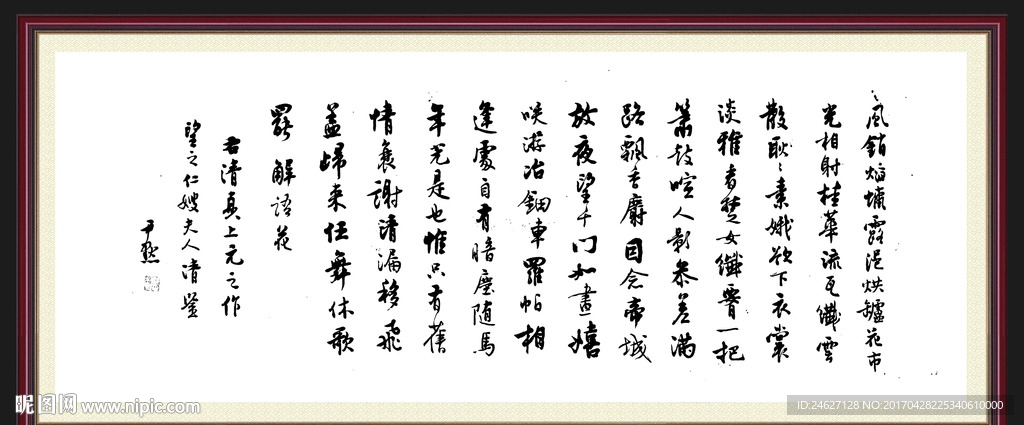 風銷焰露浥烘罏花市
光相射桂華流瓦纖雲
散耿耿素娥欲下衣裳
淡雅看楚女纖腰一把
簫鼓喧人影參差滿
路飄香麝因念帝城
放夜望千門如晝嬉
咲游冶鈿車羅帕相
逢處自有暗塵随馬
年光是也惟只有舊
情衰謝清漏移飛
蓋歸来任舞休歌
罷 解語花
右清真上元之作
望之仁嫂夫人清鑒
尹默
昵图网 www.nipic.com
ID:24627128 NO:20170428225340610000